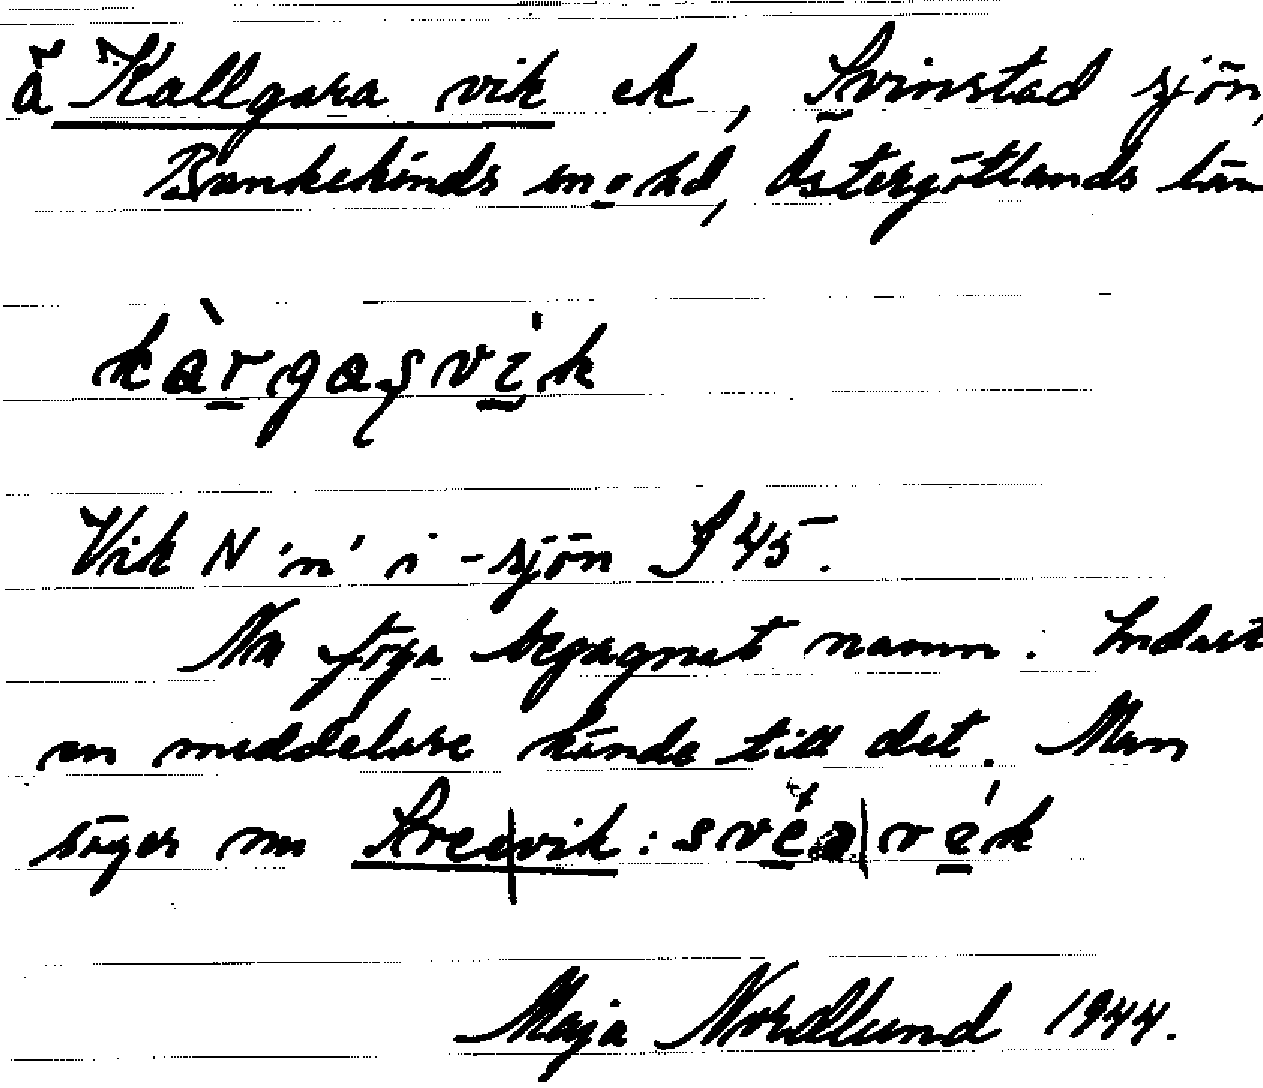 å Kallgara vik ek, Svinstad sjön,
Bankekinds snohd, Östergötlands län
kàrgasvik
Vik N 'n' i -sjön S 45.
Nu föga begagnat namn. Endast
en meddelare kände till det. Man
säger nu Sveavik: svèavék
Maja Nordlund 1944.